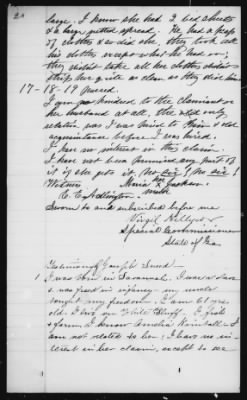 large. I know she had 2 bed sheets
& a large quilted spread. He had a heap
of clothes & so did she, they took all
his clothes except what he had on,
they didn't take all her clothes didn't
strip her quite as clean as they did him
17-18-19 Queried.
I am no kindred to the claimant or
her husband at all, the only
relation was I was hired to them & old
acquaintance before I was hired.
I have no interest in this claim.
I have not been promised any part of
it if she gets it, no sir! no sir!
Witness Maria her mark Jackson.
C. C. Adlington.
Sworn to and subscribed before me
Virgil Hillyer
Special Commissioner
State of Ga
Testimony of Joseph Sneed
I was born in Savannah. I was a slave
& was freed in infancy, my uncle
bought my freedom. I am 61 years
old. I live on White Bluff. I fish
& farm. I know Amelia Kimball. I
am not related to her; I have no in-
terest in her claim, except to see